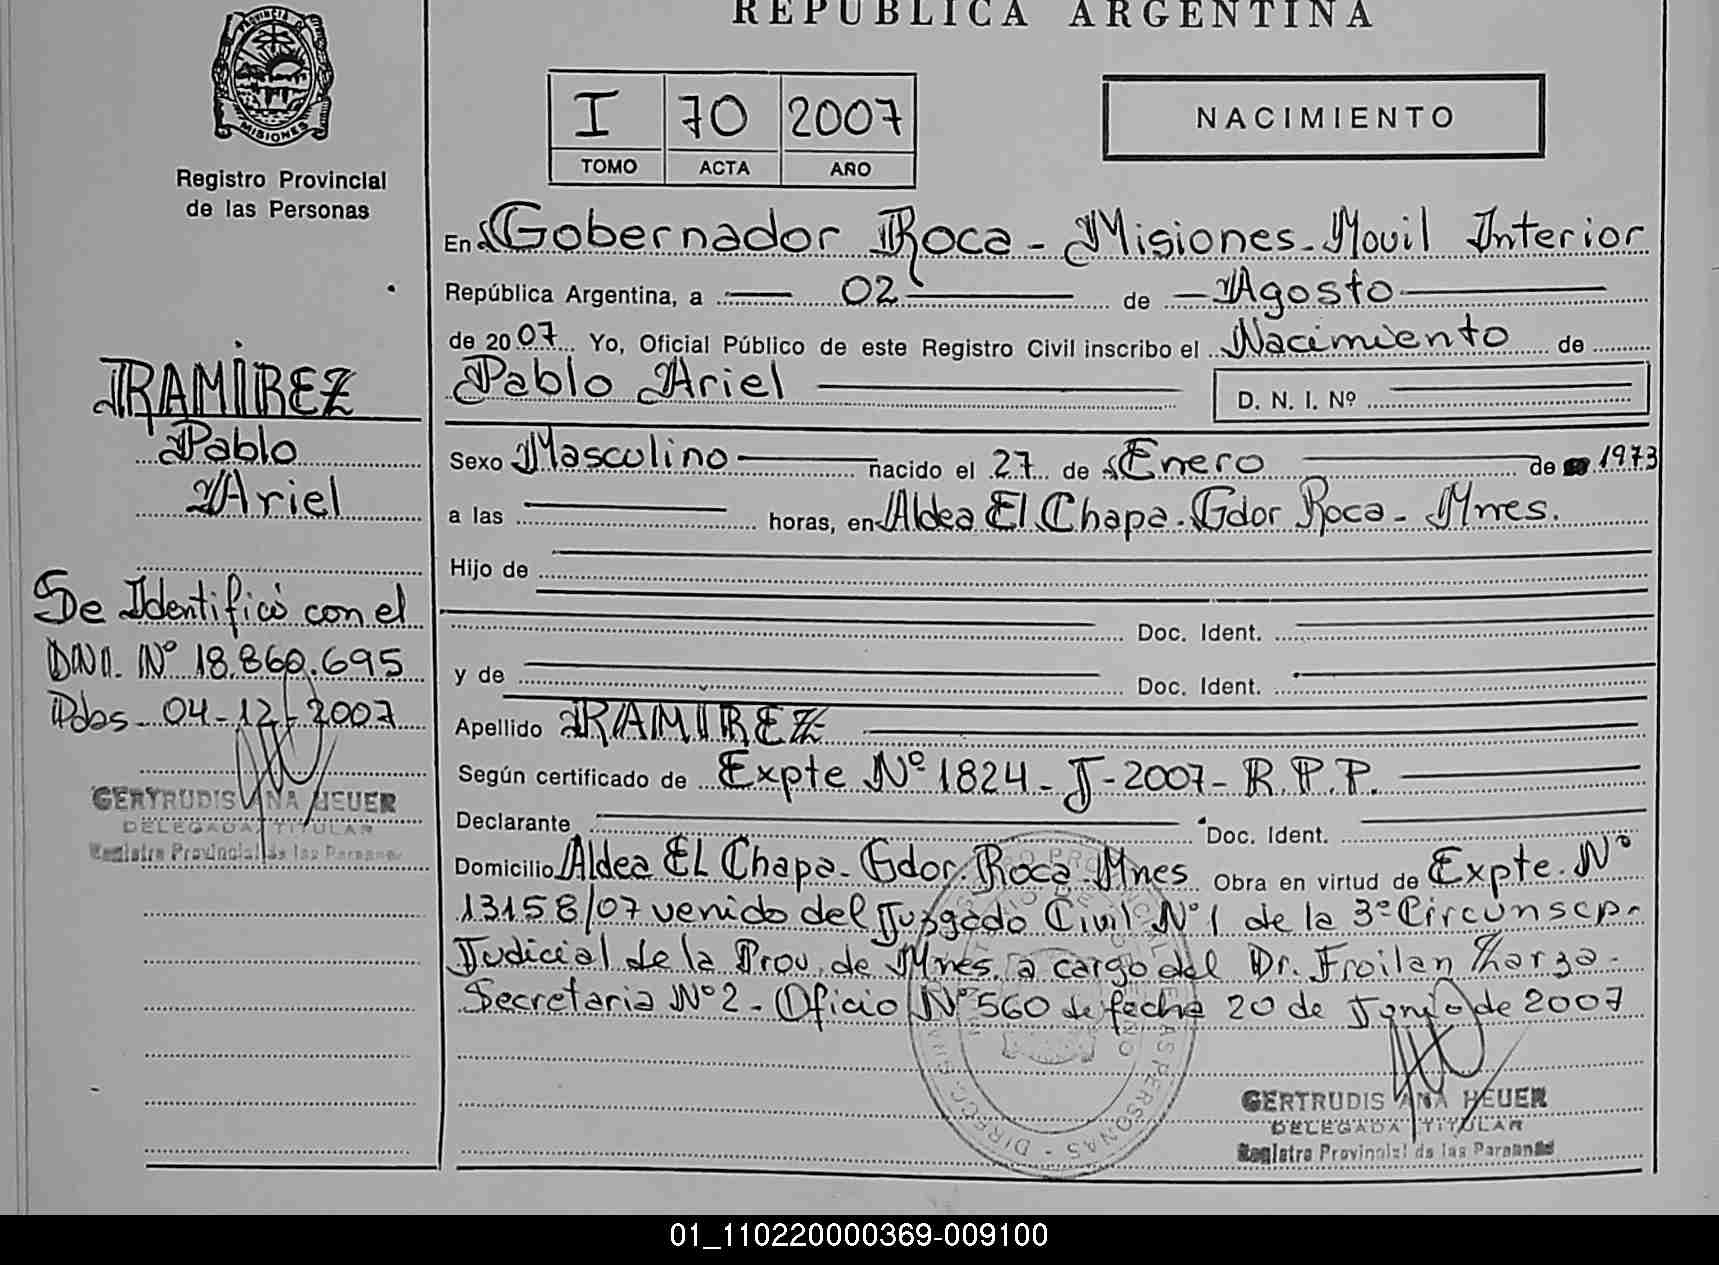 REPUBLICA ARGENTINA
PROVINCIA DE
MISIONES
Registro Provincial
de las Personas
I 70 2007
TOMO ACTA AÑO
NACIMIENTO
RAMIREZ
Pablo
Ariel
Se Identificó con el
DNI. Nº 18.860.695
Pdas. 04-12-2007
GERTRUDIS ANA HEUER
DELEGADA TITULAR
Registro Provincial de las Personas
En Gobernador Roca - Misiones - Movil Interior
República Argentina, a 02 de Agosto
de 2007 Yo, Oficial Público de este Registro Civil inscribo el Nacimiento de
Pablo Ariel D. N. I. Nº
Sexo Masculino nacido el 27 de Enero de 1973
a las horas, en Aldea El Chapa - Gdor Roca - Mnes.
Hijo de
Doc. Ident.
y de
Doc. Ident.
Apellido RAMIREZ
Según certificado de Expte Nº 1824 - J - 2007 - R.P.P.
Declarante Doc. Ident.
Domicilio Aldea EL Chapa - Gdor Roca Mnes Obra en virtud de Expte. Nº
13158/07 venido del Juzgado Civil Nº 1 de la 3º Circunscp.
Judicial de la Prov. de Mnes. a cargo del Dr. Froilan Zarza -
Secretaria Nº 2 - Oficio Nº 560 de fecha 20 de Junio de 2007
GERTRUDIS ANA HEUER
DELEGADA TITULAR
Registro Provincial de las Personas
01_110220000369-009100